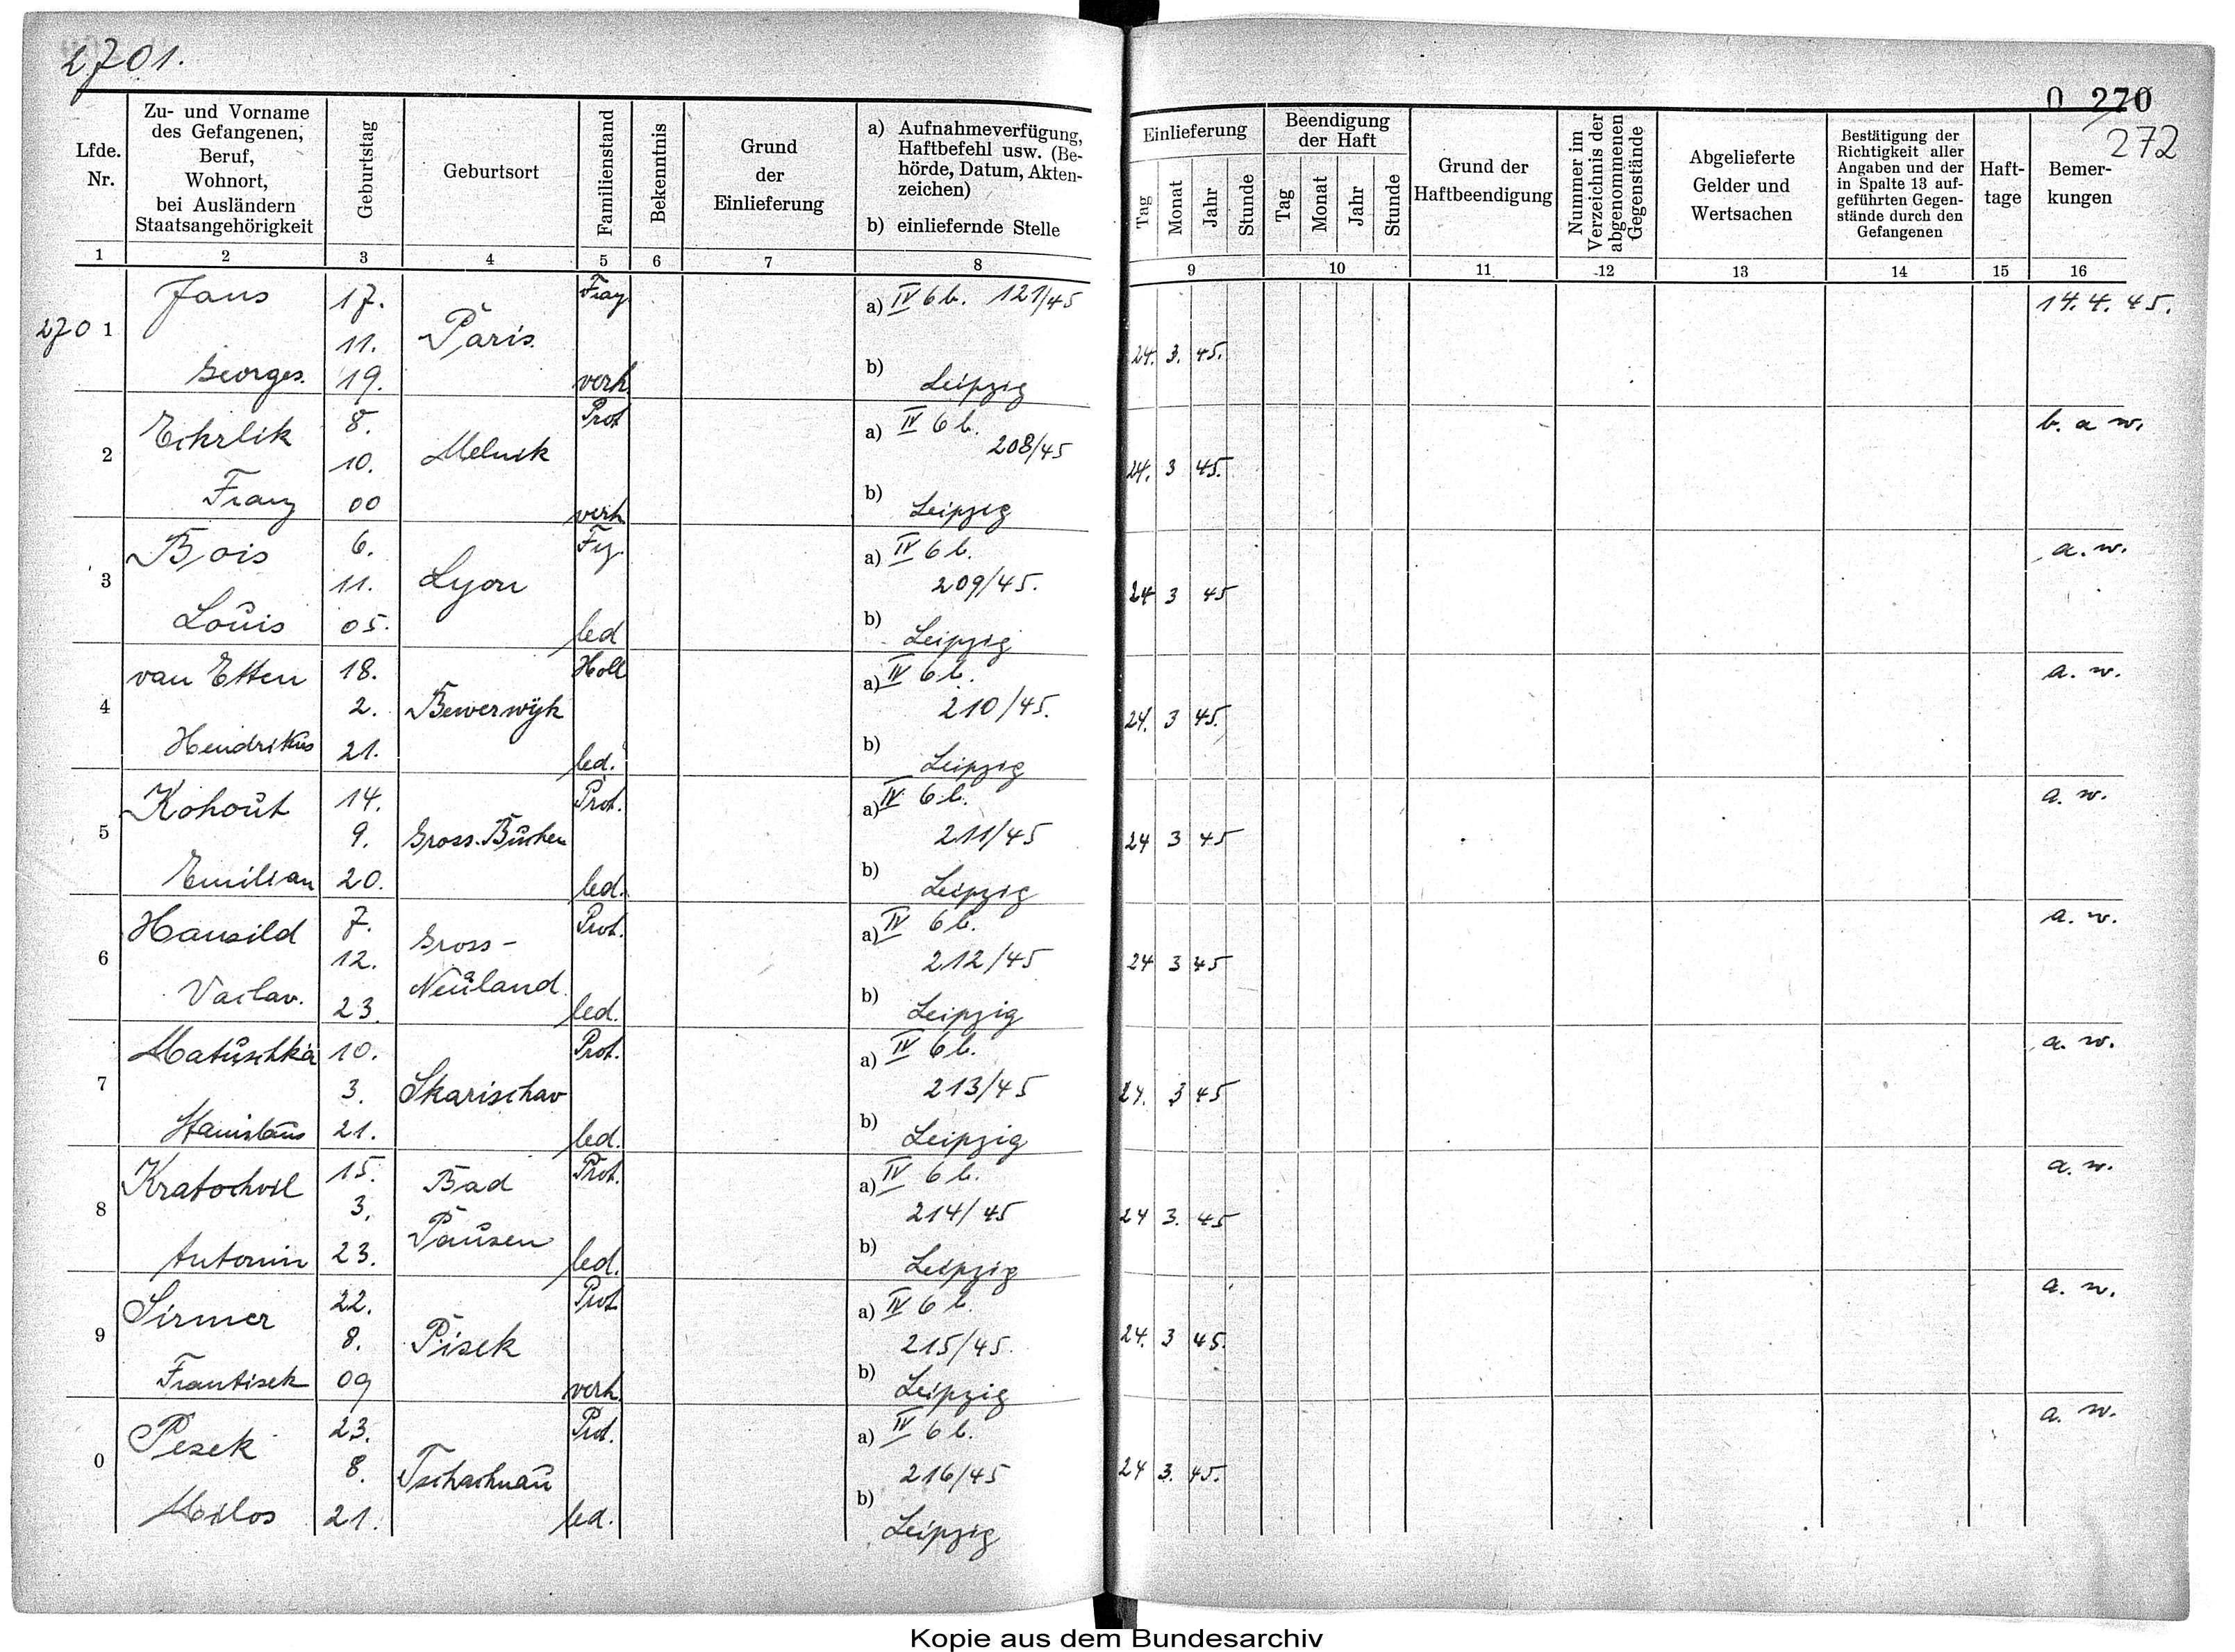 2701.
0 270
272
Lfde. Nr.
Zu- und Vorname des Gefangenen, Beruf, Wohnort, bei Ausländern Staatsangehörigkeit
Geburtstag
Geburtsort
Familienstand
Bekenntnis
Grund der Einlieferung
a) Aufnahmeverfügung, Haftbefehl usw. (Behörde, Datum, Aktenzeichen)
b) einliefernde Stelle
Einlieferung
Tag Monat Jahr Stunde
Beendigung der Haft
Tag Monat Jahr Stunde
Grund der Haftbeendigung
Nummer im Verzeichnis der abgenommenen Gegenstände
Abgelieferte Gelder und Wertsachen
Bestätigung der Richtigkeit aller Angaben und der in Spalte 13 aufgeführten Gegenstände durch den Gefangenen
Hafttage
Bemerkungen
1 2 3 4 5 6 7 8 9 10 11 12 13 14 15 16
270 1 Jans 17. a) IV 6 b. 121/45 14. 4. 45.
11. Paris. 24. 3. 45.
Georges. 19. verh b) Leipzig
2 8. Prot a) IV 6 b. 208/45 b. a w.
10. Melnik 24. 3 45.
Franz 00 verh b) Leipzig
3 Bois 6. a) IV 6 b. a. w.
11. Lyon 209/45. 24 3 45
Louis 05. led b) Leipzig
4 van Etten 18. Holl a) IV 6 b. a. w.
2. Bewerwijk 210/45. 24. 3 45.
Hendrikus 21. led. b) Leipzig
5 Kohout 14. Prot. a) IV 6 b. a. w.
9. 211/45 24 3 45
Emilian 20. led. b) Leipzig
6 Hausild 7. Gross- Prot. a) IV 6 b. a. w.
12. Neuland 212/45 24 3 45
Vaclav. 23. led. b) Leipzig
7 Matuschka 10. Prot. a) IV 6 b. a. w.
3. Skarischav 213/45 24. 3 45
Stanislaus 21. led. b) Leipzig
8 Kratochvil 15. Bad Prot. a) IV 6 b. a. w.
3. Pausen 214/45 24 3. 45
Antonin 23. led. b) Leipzig
9 Sirmer 22. Prot a) IV 6 b. a. w.
8. Pisek 215/45. 24. 3 45.
Frantisek 09 verh b) Leipzig
0 Pesek 23. Prot. a) IV 6 b. a. w.
8. 216/45 24 3. 45.
Milos 21. led. b) Leipzig
Kopie aus dem Bundesarchiv